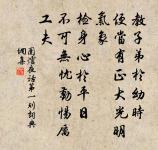 教子弟於幼時
便當有正大光明
氣象
檢身心於平日
不可無忧勤惕厲
工夫
圍爐夜話第一則詞典
網集